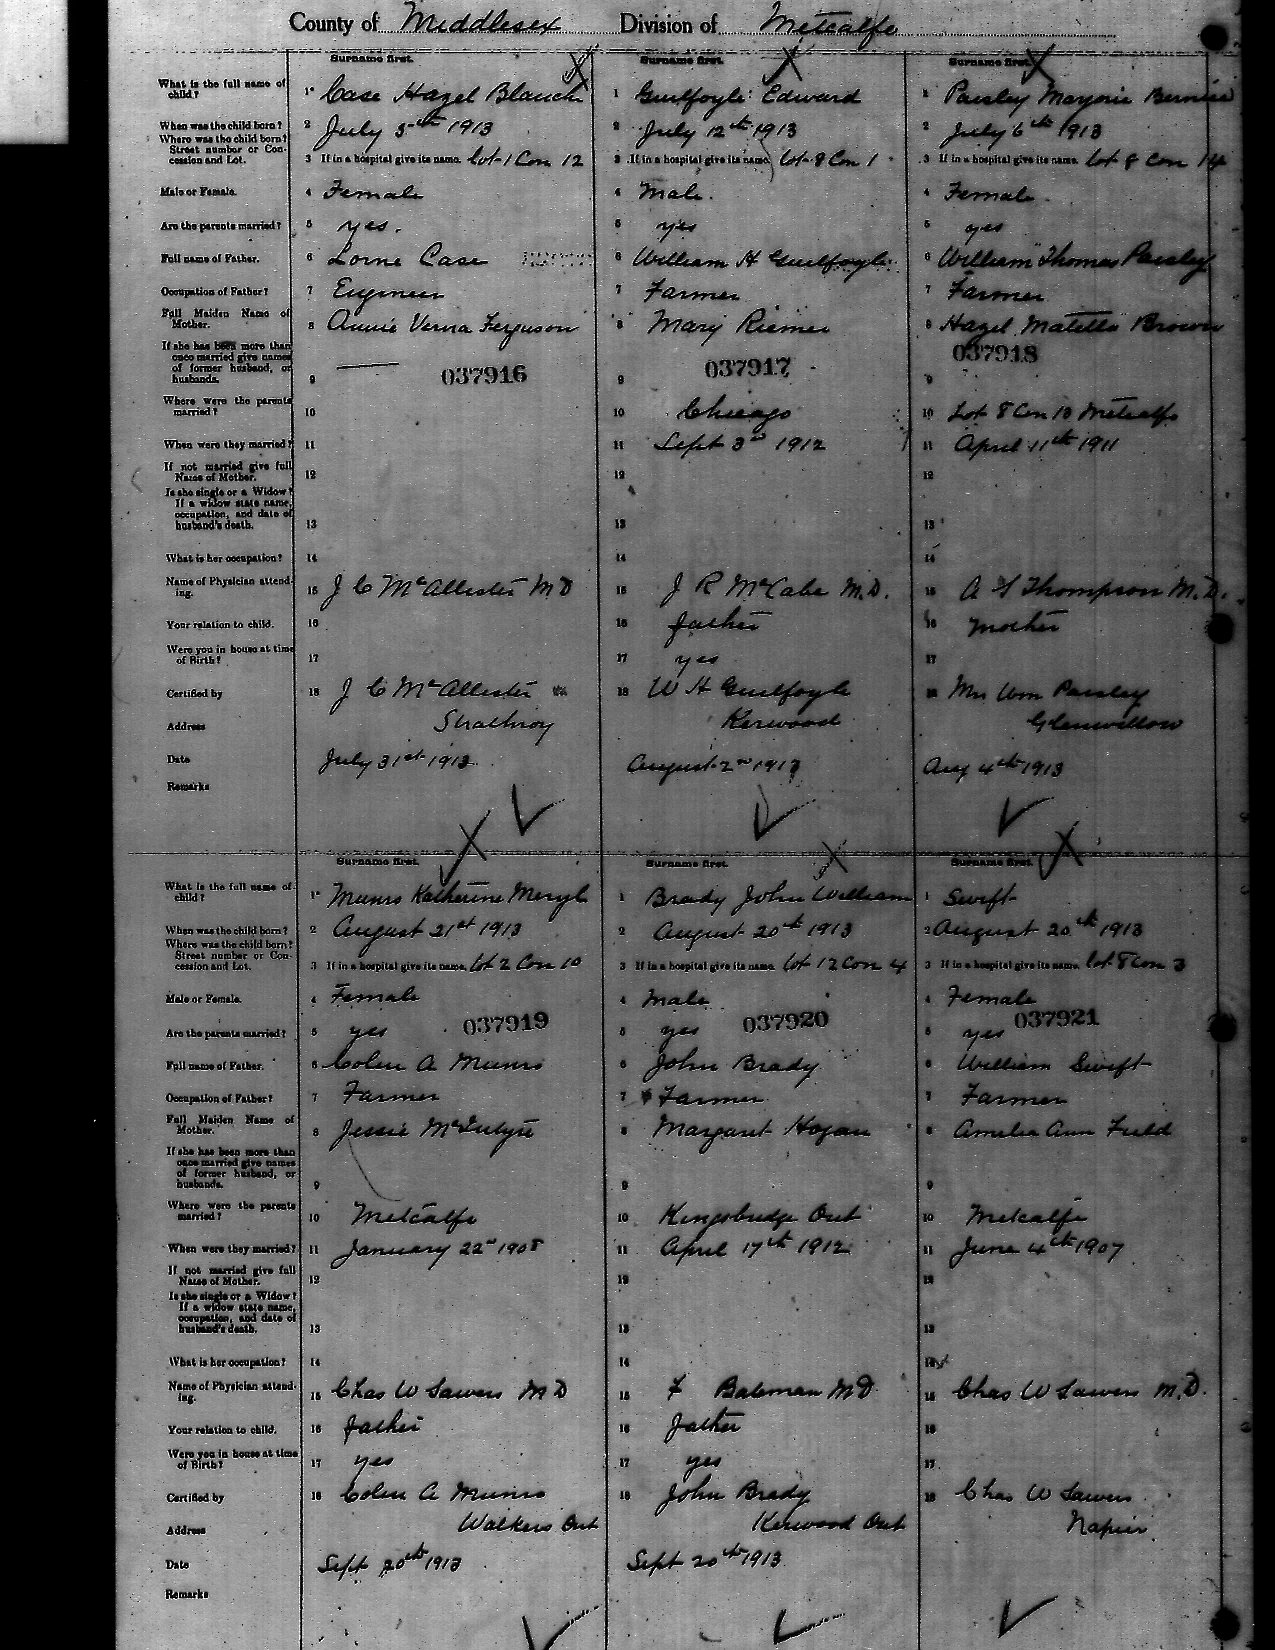 County of Middlesex Division of Metcalfe
Surname first. Surname first. Surname first.
What is the full name of child? 1 Case Hazel Blanch 1 Guilfoyle Edward 1 Paisley Marjorie Bernice
When was the child born? 2 July 5th 1913 2 July 12th 1913 2 July 6th 1913
Where was the child born? Street number or Concession and Lot. 3 If in a hospital give its name. Lot 1 Con 12 3 If in a hospital give its name. Lot 8 Con 1 3 If in a hospital give its name. Lot 8 Con 14
Male or Female. 4 Female 4 Male. 4 Female.
Are the parents married? 5 yes. 5 yes 5 yes
Full name of Father. 6 Lorne Case 6 William H Guilfoyle 6 William Thomas Paisley
Occupation of Father? 7 Engineer 7 Farmer 7 Farmer
Full Maiden Name of Mother. 8 Annie Verna Ferguson 8 Mary Riemer 8 Hazel Matella Brown
If she has been more than once married give names of former husband, or husbands. 9 037916 9 037917 9 037918
Where were the parents married? 10 10 Chicago 10 Lot 8 Con 10 Metcalfe
When were they married? 11 11 Sept 3rd 1912 11 April 11th 1911
If not married give full Name of Mother. 12 12 12
Is she single or a Widow? If a widow state name, occupation, and date of husband's death. 13 13 13
What is her occupation? 14 14 14
Name of Physician attending. 15 J C McAllister M D 15 J R McCabe M.D. 15 A S Thompson M.D.
Your relation to child. 16 16 father 16 mother
Were you in house at time of Birth? 17 17 yes 17
Certified by 18 J C McAllister 18 W H Guilfoyle 18 Mrs Wm Paisley
Address Strathroy Kerwood Glenwillow
Date July 31st 1913 August 2nd 1913 Aug 4th 1913
Remarks
Surname first. Surname first. Surname first.
What is the full name of child? 1 Munro Katherine Meryl 1 Brady John William 1 Swift
When was the child born? 2 August 21st 1913 2 August 20th 1913 2 August 20th 1913
Where was the child born? Street number or Concession and Lot. 3 If in a hospital give its name. Lot 2 Con 10 3 If in a hospital give its name. Lot 12 Con 4 3 If in a hospital give its name. Lot 8 Con 3
Male or Female. 4 Female 4 Male 4 Female
Are the parents married? 5 yes 037919 5 yes 037920 5 yes 037921
Full name of Father. 6 Colin A Munro 6 John Brady 6 William Swift
Occupation of Father? 7 Farmer 7 Farmer 7 Farmer
Full Maiden Name of Mother. 8 Jessie McIntyre 8 Margaret Hogan 8 Amelia Ann Field
If she has been more than once married give names of former husband, or husbands. 9 9 9
Where were the parents married? 10 Metcalfe 10 Kingsbridge Ont 10 Metcalfe
When were they married? 11 January 22nd 1908 11 April 17th 1912 11 June 4th 1907
If not married give full Name of Mother. 12 12 12
Is she single or a Widow? If a widow state name, occupation, and date of husband's death. 13 13 13
What is her occupation? 14 14 14
Name of Physician attending. 15 Chas W Sawers M D 15 F Bateman M D 15 Chas W Sawers M.D.
Your relation to child. 16 father 16 father 16
Were you in house at time of Birth? 17 yes 17 yes 17
Certified by 18 Colin A Munro 18 John Brady 18 Chas W Sawers
Address Walkers Ont Kerwood Ont Napier
Date Sept 20th 1913 Sept 20th 1913
Remarks